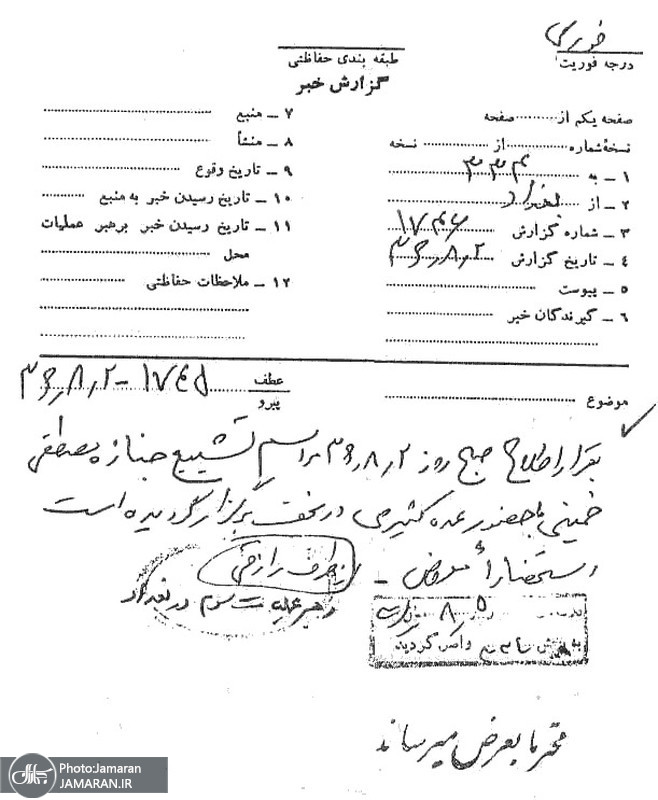 فوری
درجه فوریت
طبقه بندی حفاظتی
گزارش خبر
صفحه یکم از............ صفحه
نسخهٔ شماره................از................نسخه
۱ ـ به ۳۳۴
۲ ـ از بغداد
۳ ـ شماره گزارش ۱۷۴۶
۴ ـ تاریخ گزارش ۳۶٫۸٫۲
۵ ـ پیوست
۶ ـ گیرندگان خبر
۷ ـ منبع
۸ ـ منشأ
۹ ـ تاریخ وقوع
۱۰ ـ تاریخ رسیدن خبر به منبع
۱۱ ـ تاریخ رسیدن خبر برهبر عملیات
محل
۱۲ ـ ملاحظات حفاظتی
موضوع
عطف
پیرو
۱۷۴۵ - ۳۶٫۸٫۲
بقرار اطلاع صبح روز ۳۶٫۸٫۲ مراسم تشییع جنازه مصطفی
خمینی با حضور عده کثیری در نجف برگزار گردیده است
استحضاراً معروض ـ
از طرف رازقی
رهبر عملیات سوم در بغداد
واصل گردید
محترما بعرض میرساند
Photo:Jamaran
JAMARAN.IR